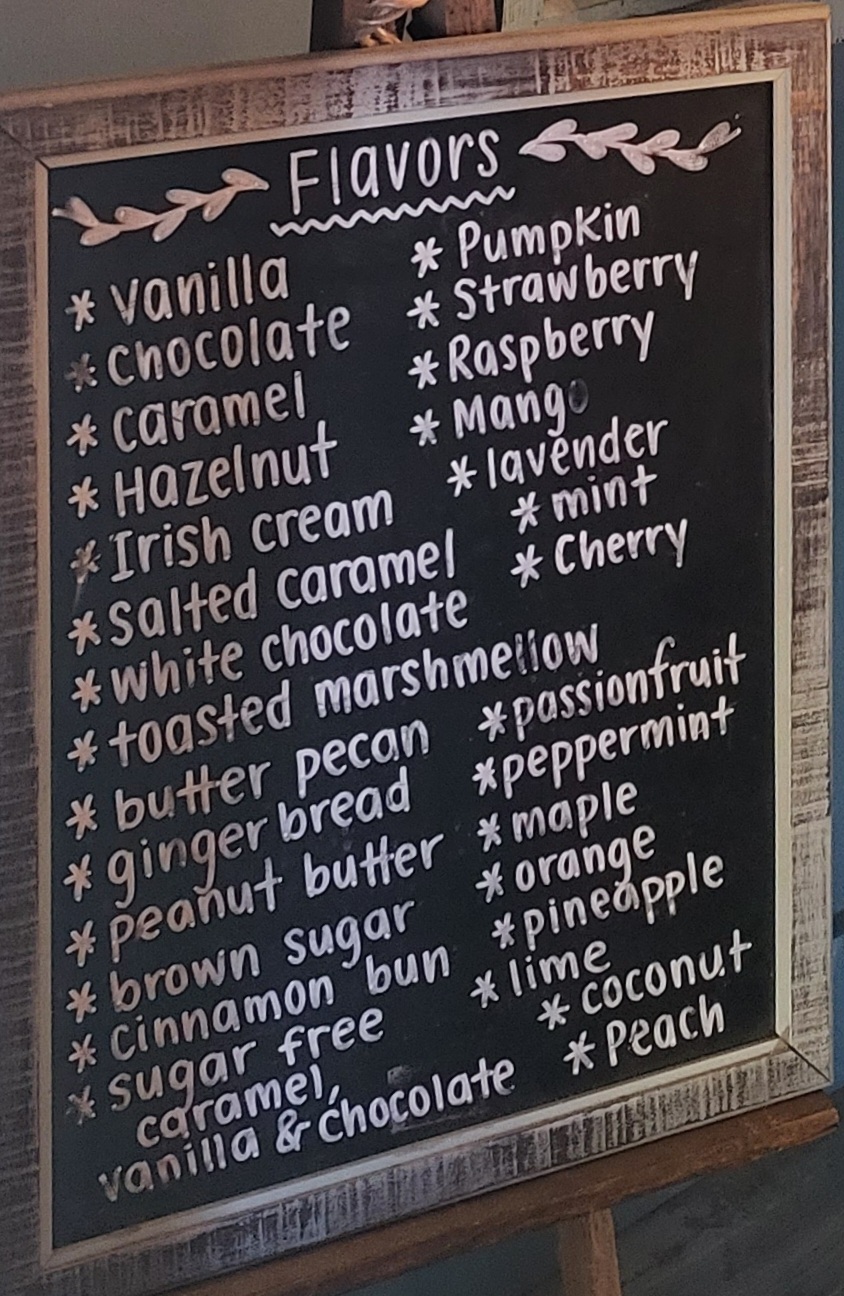 Flavors
* vanilla
* chocolate
* caramel
* Hazelnut
* Irish cream
* salted caramel
* white chocolate
* toasted marshmellow
* butter pecan
* ginger bread
* peanut butter
* brown sugar
* cinnamon bun
* sugar free
caramel,
vanilla & chocolate
* Pumpkin
* Strawberry
* Raspberry
* Mango
* lavender
* mint
* Cherry
* passionfruit
* peppermint
* maple
* orange
* pineapple
* lime
* coconut
* Peach